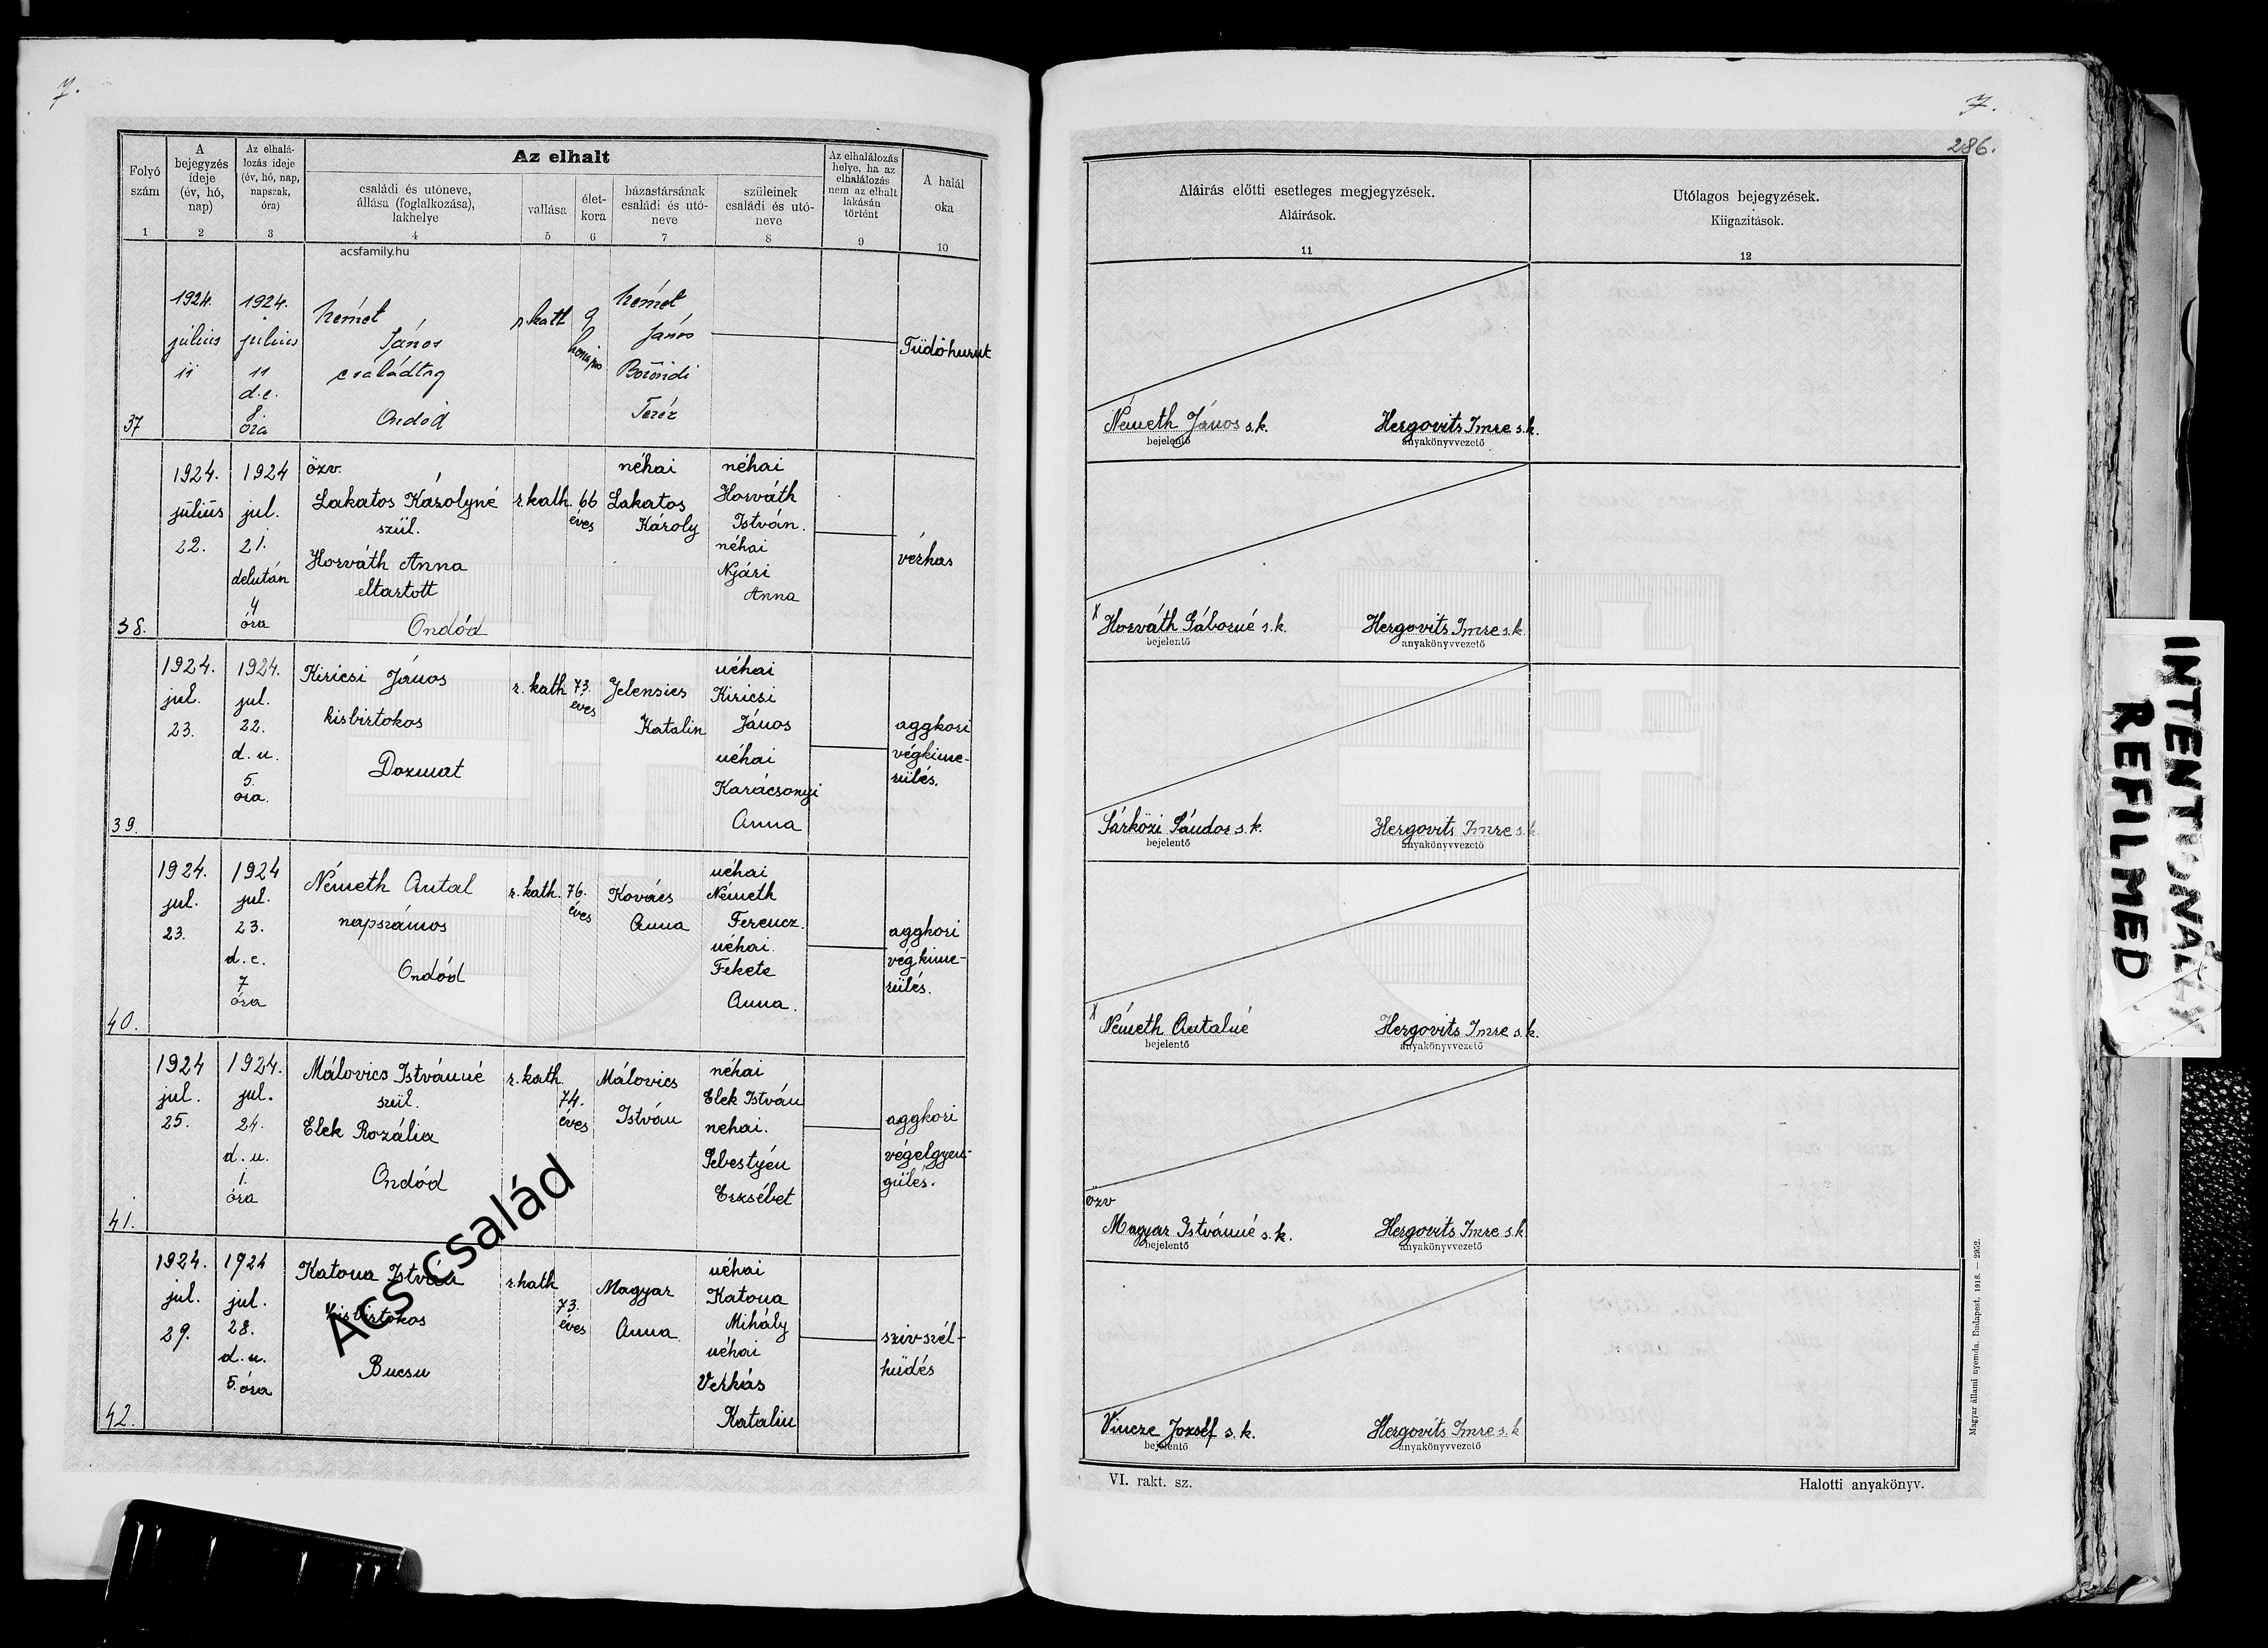 7.
7.
286.
Folyó szám
1
A bejegyzés ideje (év, hó, nap)
2
Az elhalálozás ideje (év, hó, nap, napszak, óra)
3
Az elhalt
családi és utóneve, állása (foglalkozása), lakhelye
4
vallása
5
életkora
6
házastársának családi és utóneve
7
szüleinek családi és utóneve
8
Az elhalálozás helye, ha az elhalálozás nem az elhalt lakásán történt
9
A halál oka
10
Aláírás előtti esetleges megjegyzések.
Aláírások.
11
Utólagos bejegyzések.
Kiigazítások.
12
acsfamily.hu
37
1924.
július
11
1924.
július
11
d.e.
8.
óra
Német
János
családtag
Ondód
r. kath
9
hónapos
Német
János
Böröndi
Teréz
Tüdőhurut
Németh János s.k.
bejelentő
Hergovits Imre s.k.
anyakönyvvezető
38.
1924.
július
22.
1924
jul.
21.
délután
4
óra
özv.
Lakatos Károlyné
szül.
Horváth Anna
eltartott
Ondód
r. kath.
66
éves
néhai
Lakatos
Károly
néhai
Horváth
István.
néhai
Nyári
Anna
vérhas
x Horváth Gáborné s.k.
bejelentő
Hergovits Imre s.k.
anyakönyvvezető
39.
1924.
jul.
23.
1924.
jul.
22.
d. u.
5.
óra.
Kiricsi János
kisbirtokos
Dozmat
r. kath
73.
éves
Jelensics
Katalin
néhai
Kiricsi
János
néhai
Karácsonyi
Anna
aggkori
végkime-
rülés.
Sárközi Sándor s.k.
bejelentő
Hergovits Imre s.k.
anyakönyvvezető
40.
1924.
jul.
23.
1924
jul.
23.
d. e.
7
óra
Németh Antal
napszámos
Ondód
r. kath.
76.
éves
Kovács
Anna
néhai
Németh
Ferencz.
néhai.
Fekete
Anna.
aggkori
végkime-
rülés.
x Németh Antalné
bejelentő
Hergovits Imre s.k.
anyakönyvvezető
41.
1924
jul.
25.
1924.
jul.
24.
d. u.
1.
óra
Málovics Istvánné
szül.
Elek Rozália
Ondód
r. kath.
74.
éves
Málovics
István
néhai
Elek István
nehai.
Sebestyén
Erzsébet
aggkori
végelgyen-
gülés.
özv
Magyar Istvánné s.k.
bejelentő
Hergovits Imre s.k.
anyakönyvvezető
42.
1924.
jul.
29.
1924
jul.
28.
d. u.
5. óra
Katona István
kisbirtokos
Bucsu
r. kath
73.
éves
Magyar
Anna
néhai
Katona
Mihály
néhai
Verkás
Katalin
szivszél-
hüdés
Vincze József s.k.
bejelentő
Hergovits Imre s.k.
anyakönyvvezető
Acs család
VI. rakt. sz.
Halotti anyakönyv.
Magyar állami nyomda. Budapest, 1918. — 2952.
INTENTIONALLY
REFILMED